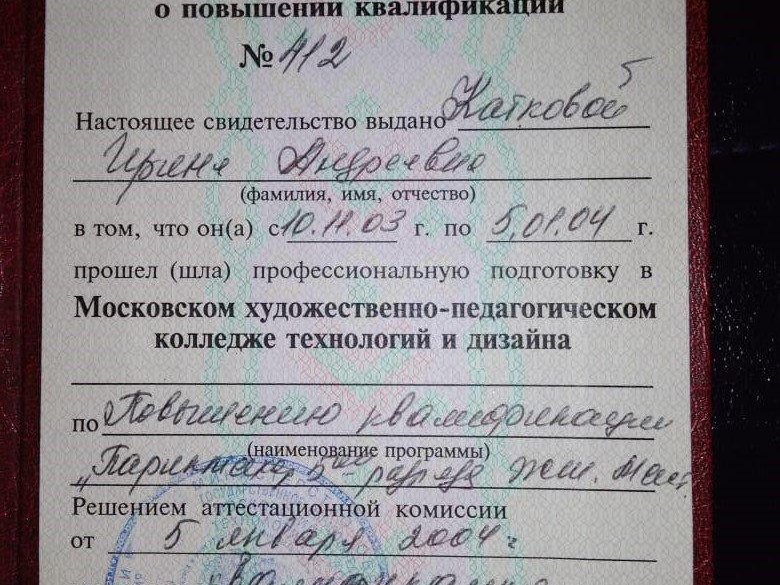 о повышении квалификации
№ 412
Настоящее свидетельство выдано Катковой
Ирине Андреевне
(фамилия, имя, отчество)
в том, что он(а) с 10.11.03 г. по 5.01.04 г.
прошел (шла) профессиональную подготовку в
Московском художественно-педагогическом
колледже технологий и дизайна
по Повышению квалификации
(наименование программы)
„Парикмахер 5ого разряда
Решением аттестационной комиссии
от 5 января 2004 г